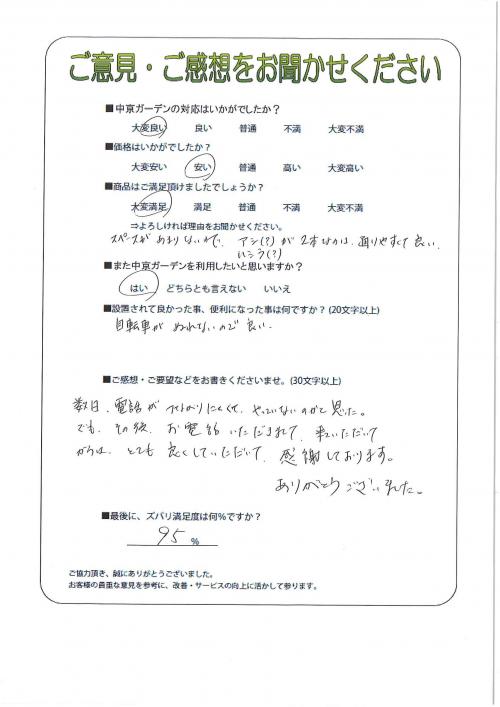 ご意見・ご感想をお聞かせください
■中京ガーデンの対応はいかがでしたか？
大変良い 良い 普通 不満 大変不満
■価格はいかがでしたか？
大変安い 安い 普通 高い 大変高い
■商品はご満足頂けましたでしょうか？
大変満足 満足 普通 不満 大変不満
⇒よろしければ理由をお聞かせください。
スペースがあまりないので、アシ(?)が2本なのは、通りやすくて良い。
はしら(?)
■また中京ガーデンを利用したいと思いますか？
はい どちらとも言えない いいえ
■設置されて良かった事、便利になった事は何ですか？(20文字以上)
自転車がぬれないので良い。
■ご感想・ご要望などをお書きくださいませ。(30文字以上)
数日、電話がつながりにくくて、やっていないのかと思った。
でも、その後、お電話いただきまして、来ていただいて
からは、とても良くしていただいて、感謝しております。
ありがとうございました。
■最後に、ズバリ満足度は何％ですか？
95 %
ご協力頂き、誠にありがとうございました。
お客様の貴重な意見を参考に、改善・サービスの向上に活かして参ります。